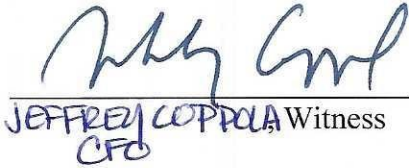 JEFFREY COPPOLA, Witness
CFO